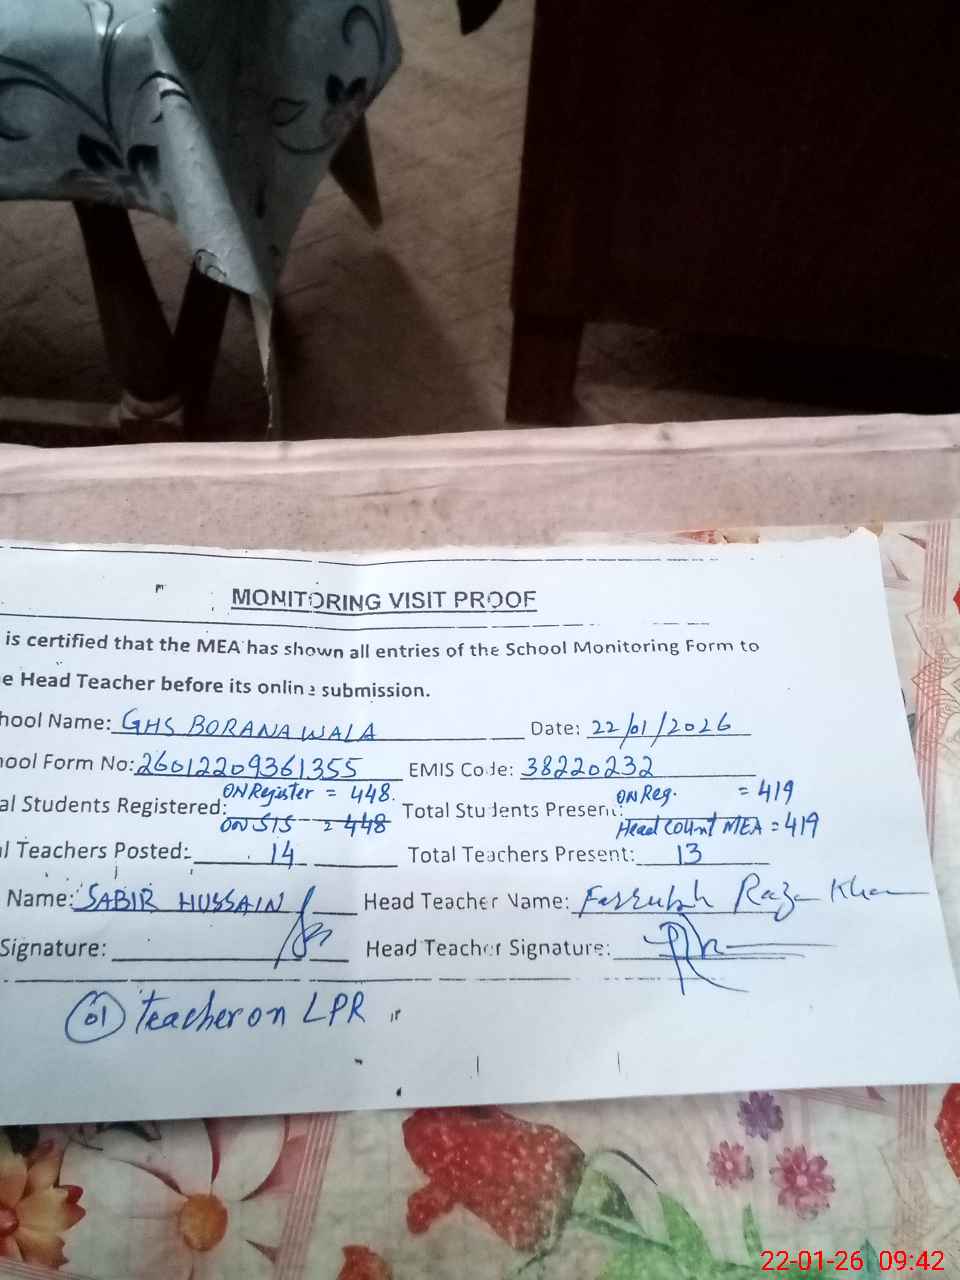 MONITORING VISIT PROOF
is certified that the MEA has shown all entries of the School Monitoring Form to
e Head Teacher before its online submission.
hool Name: GHS BORANA WALA Date: 22/01/2026
ool Form No: 26012209361355 EMIS Code: 38220232
al Students Registered: ON Register = 448. ON SIS = 448 Total Students Present: ON Reg. = 419 Head Count MEA = 419
l Teachers Posted: 14 Total Teachers Present: 13
Name: SABIR HUSSAIN Head Teacher Name: Farrukh Raza Khan
Signature: Head Teacher Signature:
01 teacher on LPR
22-01-26 09:42